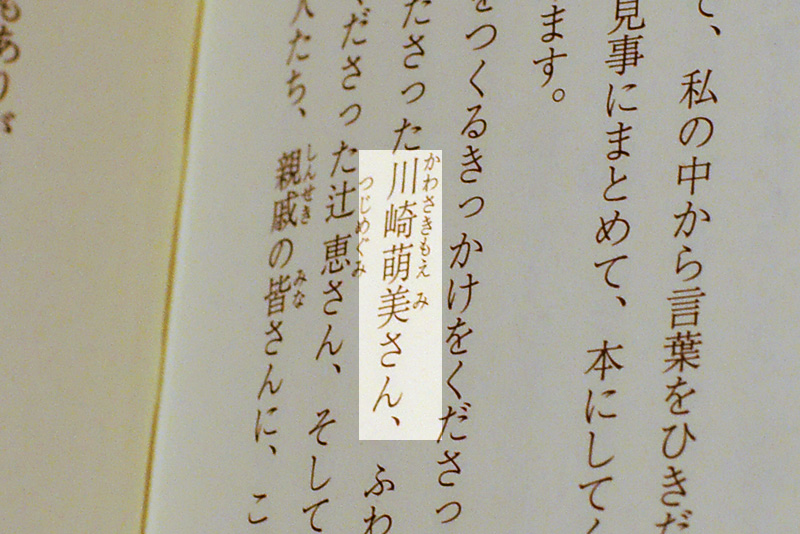 て、私の中から言葉をひきだ
見事にまとめて、本にしてく
ます。
をつくるきっかけをくださっ
ださった川崎萌美さん、ふわ
かわさきもえみ
くださった辻恵さん、そして
つじめぐみ
人たち、親戚の皆さんに、こ
しんせき みな
もありが